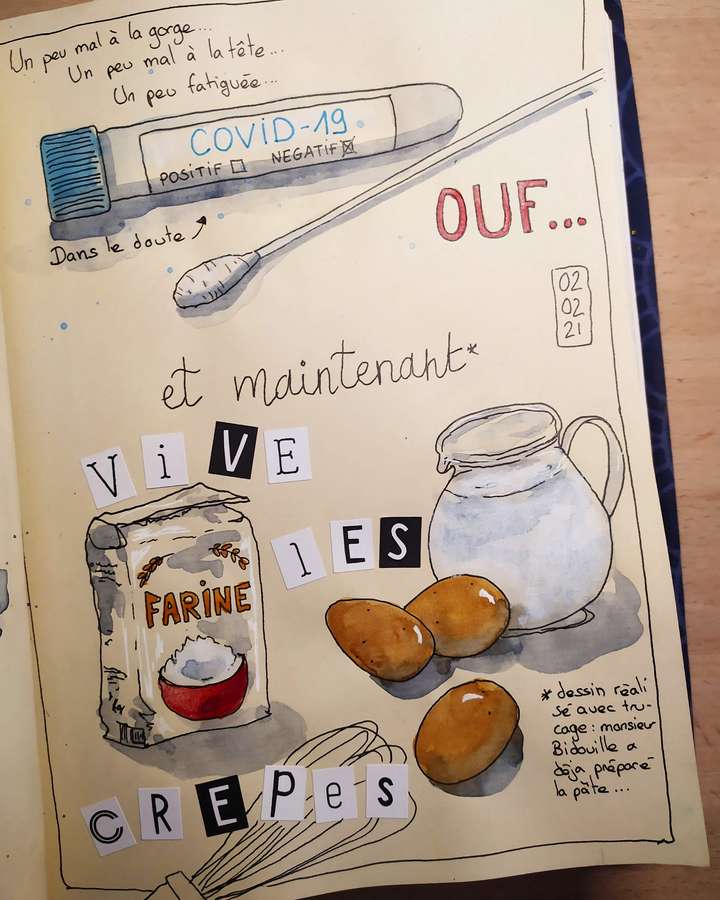 Un peu mal à la gorge...
Un peu mal à la tête...
Un peu fatiguée...
COViD-19
POSiTiF
NEGATiF
Dans le doute
OUF...
02
02
21
et maintenant*
ViVE
lES
FARiNE
CREPeS
* dessin réali
sé avec tru-
cage : monsieur
Bidouille a
déja préparé
la pâte...